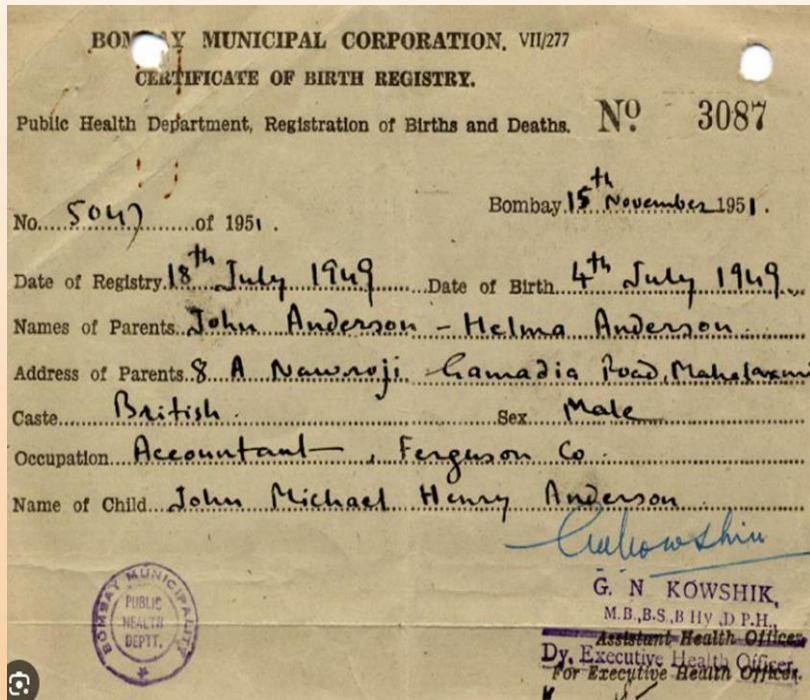 BOMBAY MUNICIPAL CORPORATION. VII/277
CERTIFICATE OF BIRTH REGISTRY.
Public Health Department, Registration of Births and Deaths. No. 3087
Bombay 15th November 1951.
No. 5047 of 1951.
Date of Registry 18th July 1949 Date of Birth 4th July 1949
Names of Parents John Anderson - Helma Anderson
Address of Parents 8 A Nawroji Gamadia Road, Mahalaxmi
Caste British. Sex Male
Occupation Accountant, Ferguson Co.
Name of Child John Michael Henry Anderson
G. N KOWSHIK,
M.B.,B.S.,B Hy.,D P.H.,
Assistant Health Officer
Dy. Executive Health Officer,
For Executive Health Officer.
BOMBAY MUNICIPALITY
PUBLIC
HEALTH
DEPTT.